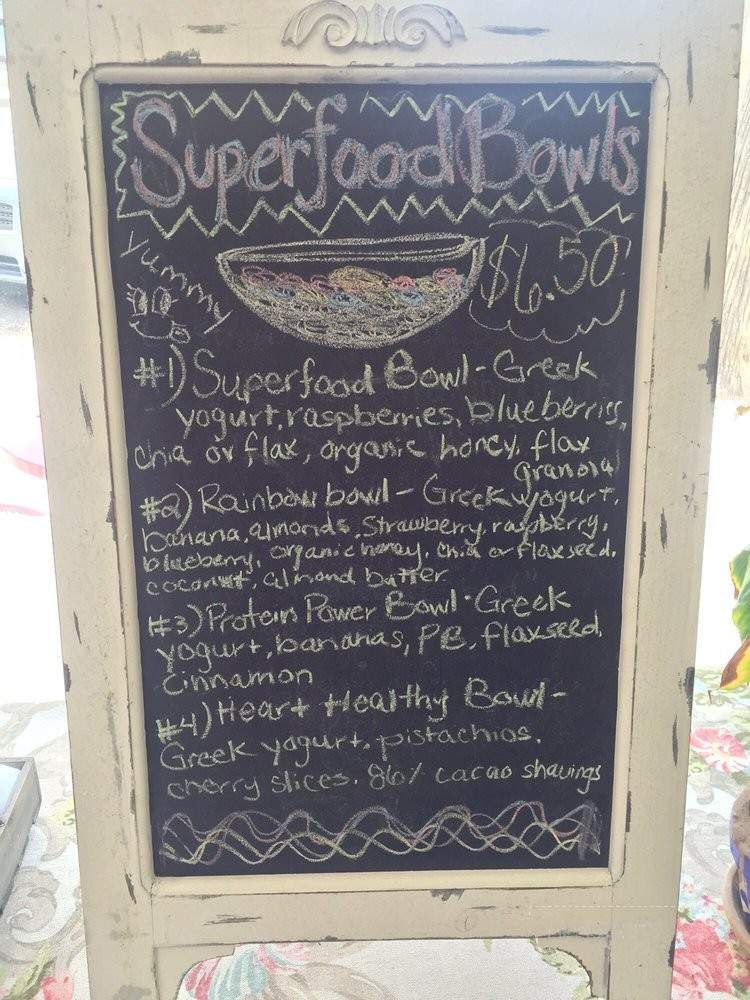 Superfood Bowls
Yummy
$6.50
#1) Superfood Bowl - Greek
yogurt, raspberries, blueberries,
chia or flax, organic honey, flax
granola
#2) Rainbow bowl - Greek yogurt,
banana, almonds, strawberry, raspberry,
blueberry, organic honey, chia or flaxseed,
coconut, almond butter
#3) Protein Power Bowl - Greek
yogurt, bananas, PB, flaxseed,
cinnamon
#4) Heart Healthy Bowl -
Greek yogurt, pistachios,
cherry slices, 86% cacao shavings